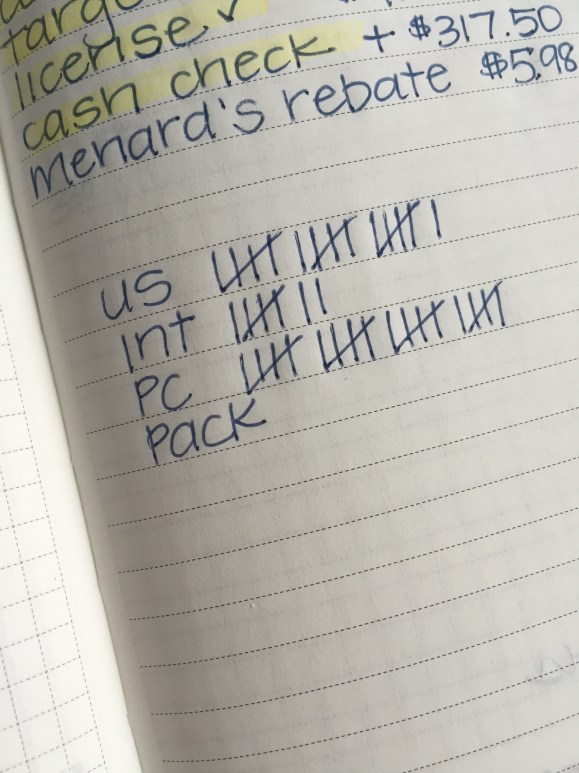 license ✓
cash check + $317.50
menard's rebate $5.98
US 卌 卌 卌 |
Int 卌 ||
PC 卌 卌 卌 卌
Pack